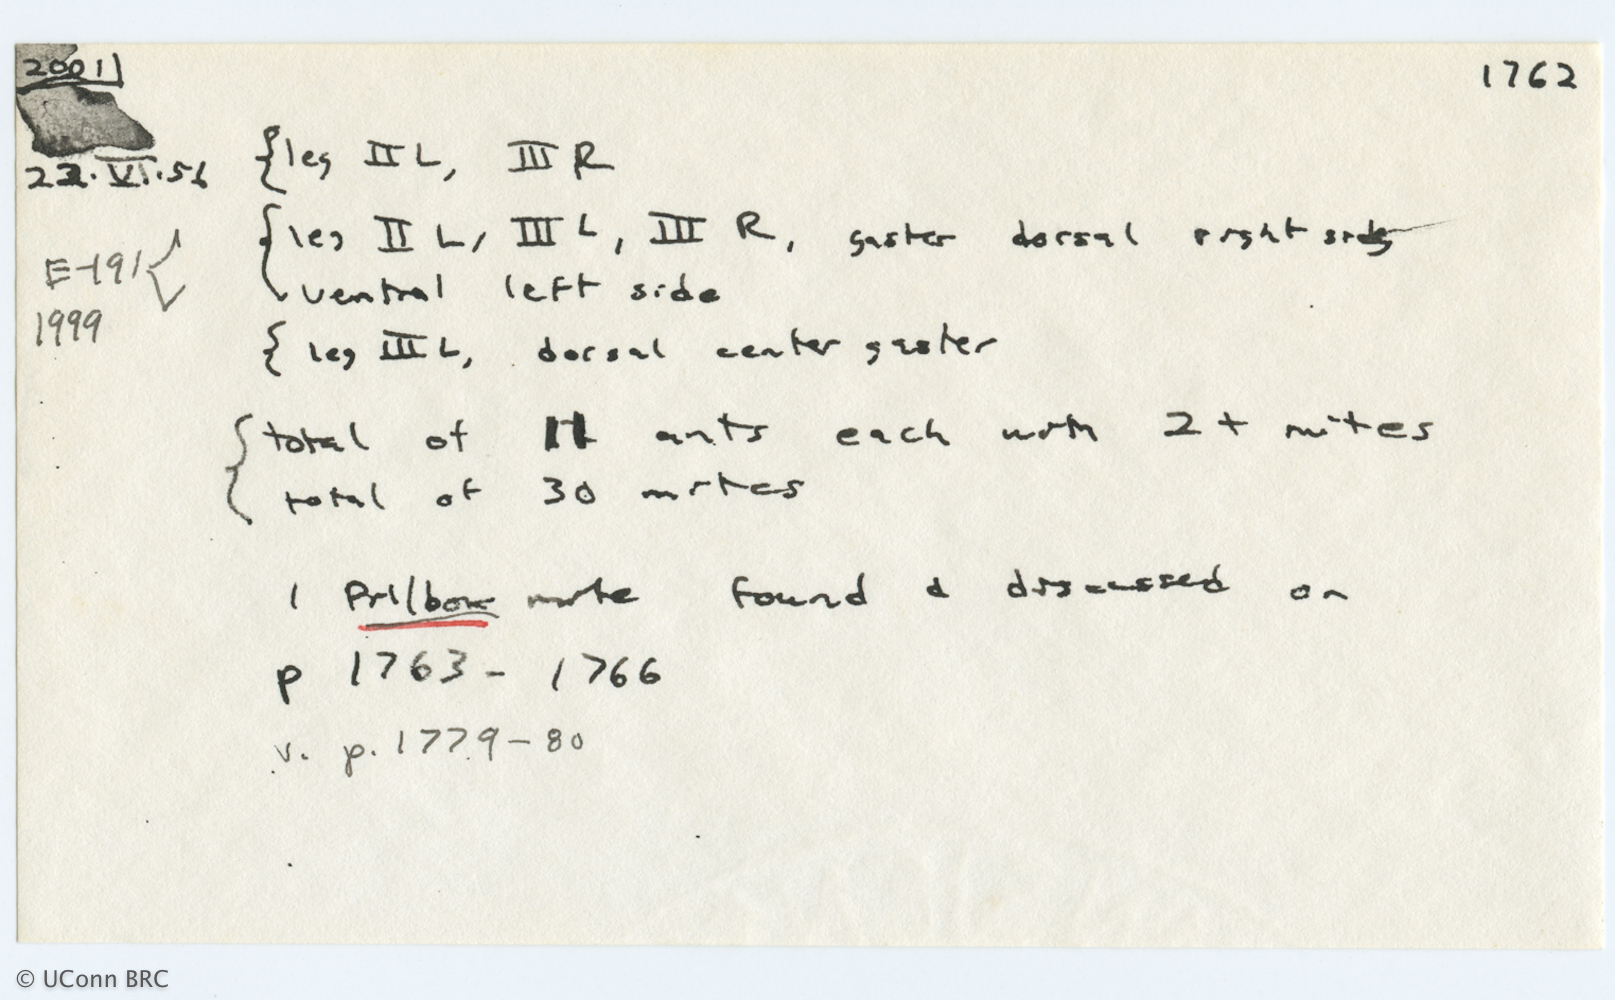 2001
1762
22.VI.56
{leg II L, III R
{leg II L, III L, III R, gaster dorsal right side
ventral left side
E-191 <
1999
{leg III L, dorsal center gaster
{total of 11 ants each with 2+ mites
total of 30 mites
1 Pillbox mite found & discussed on
p 1763 - 1766
v. p. 1779-80
© UConn BRC